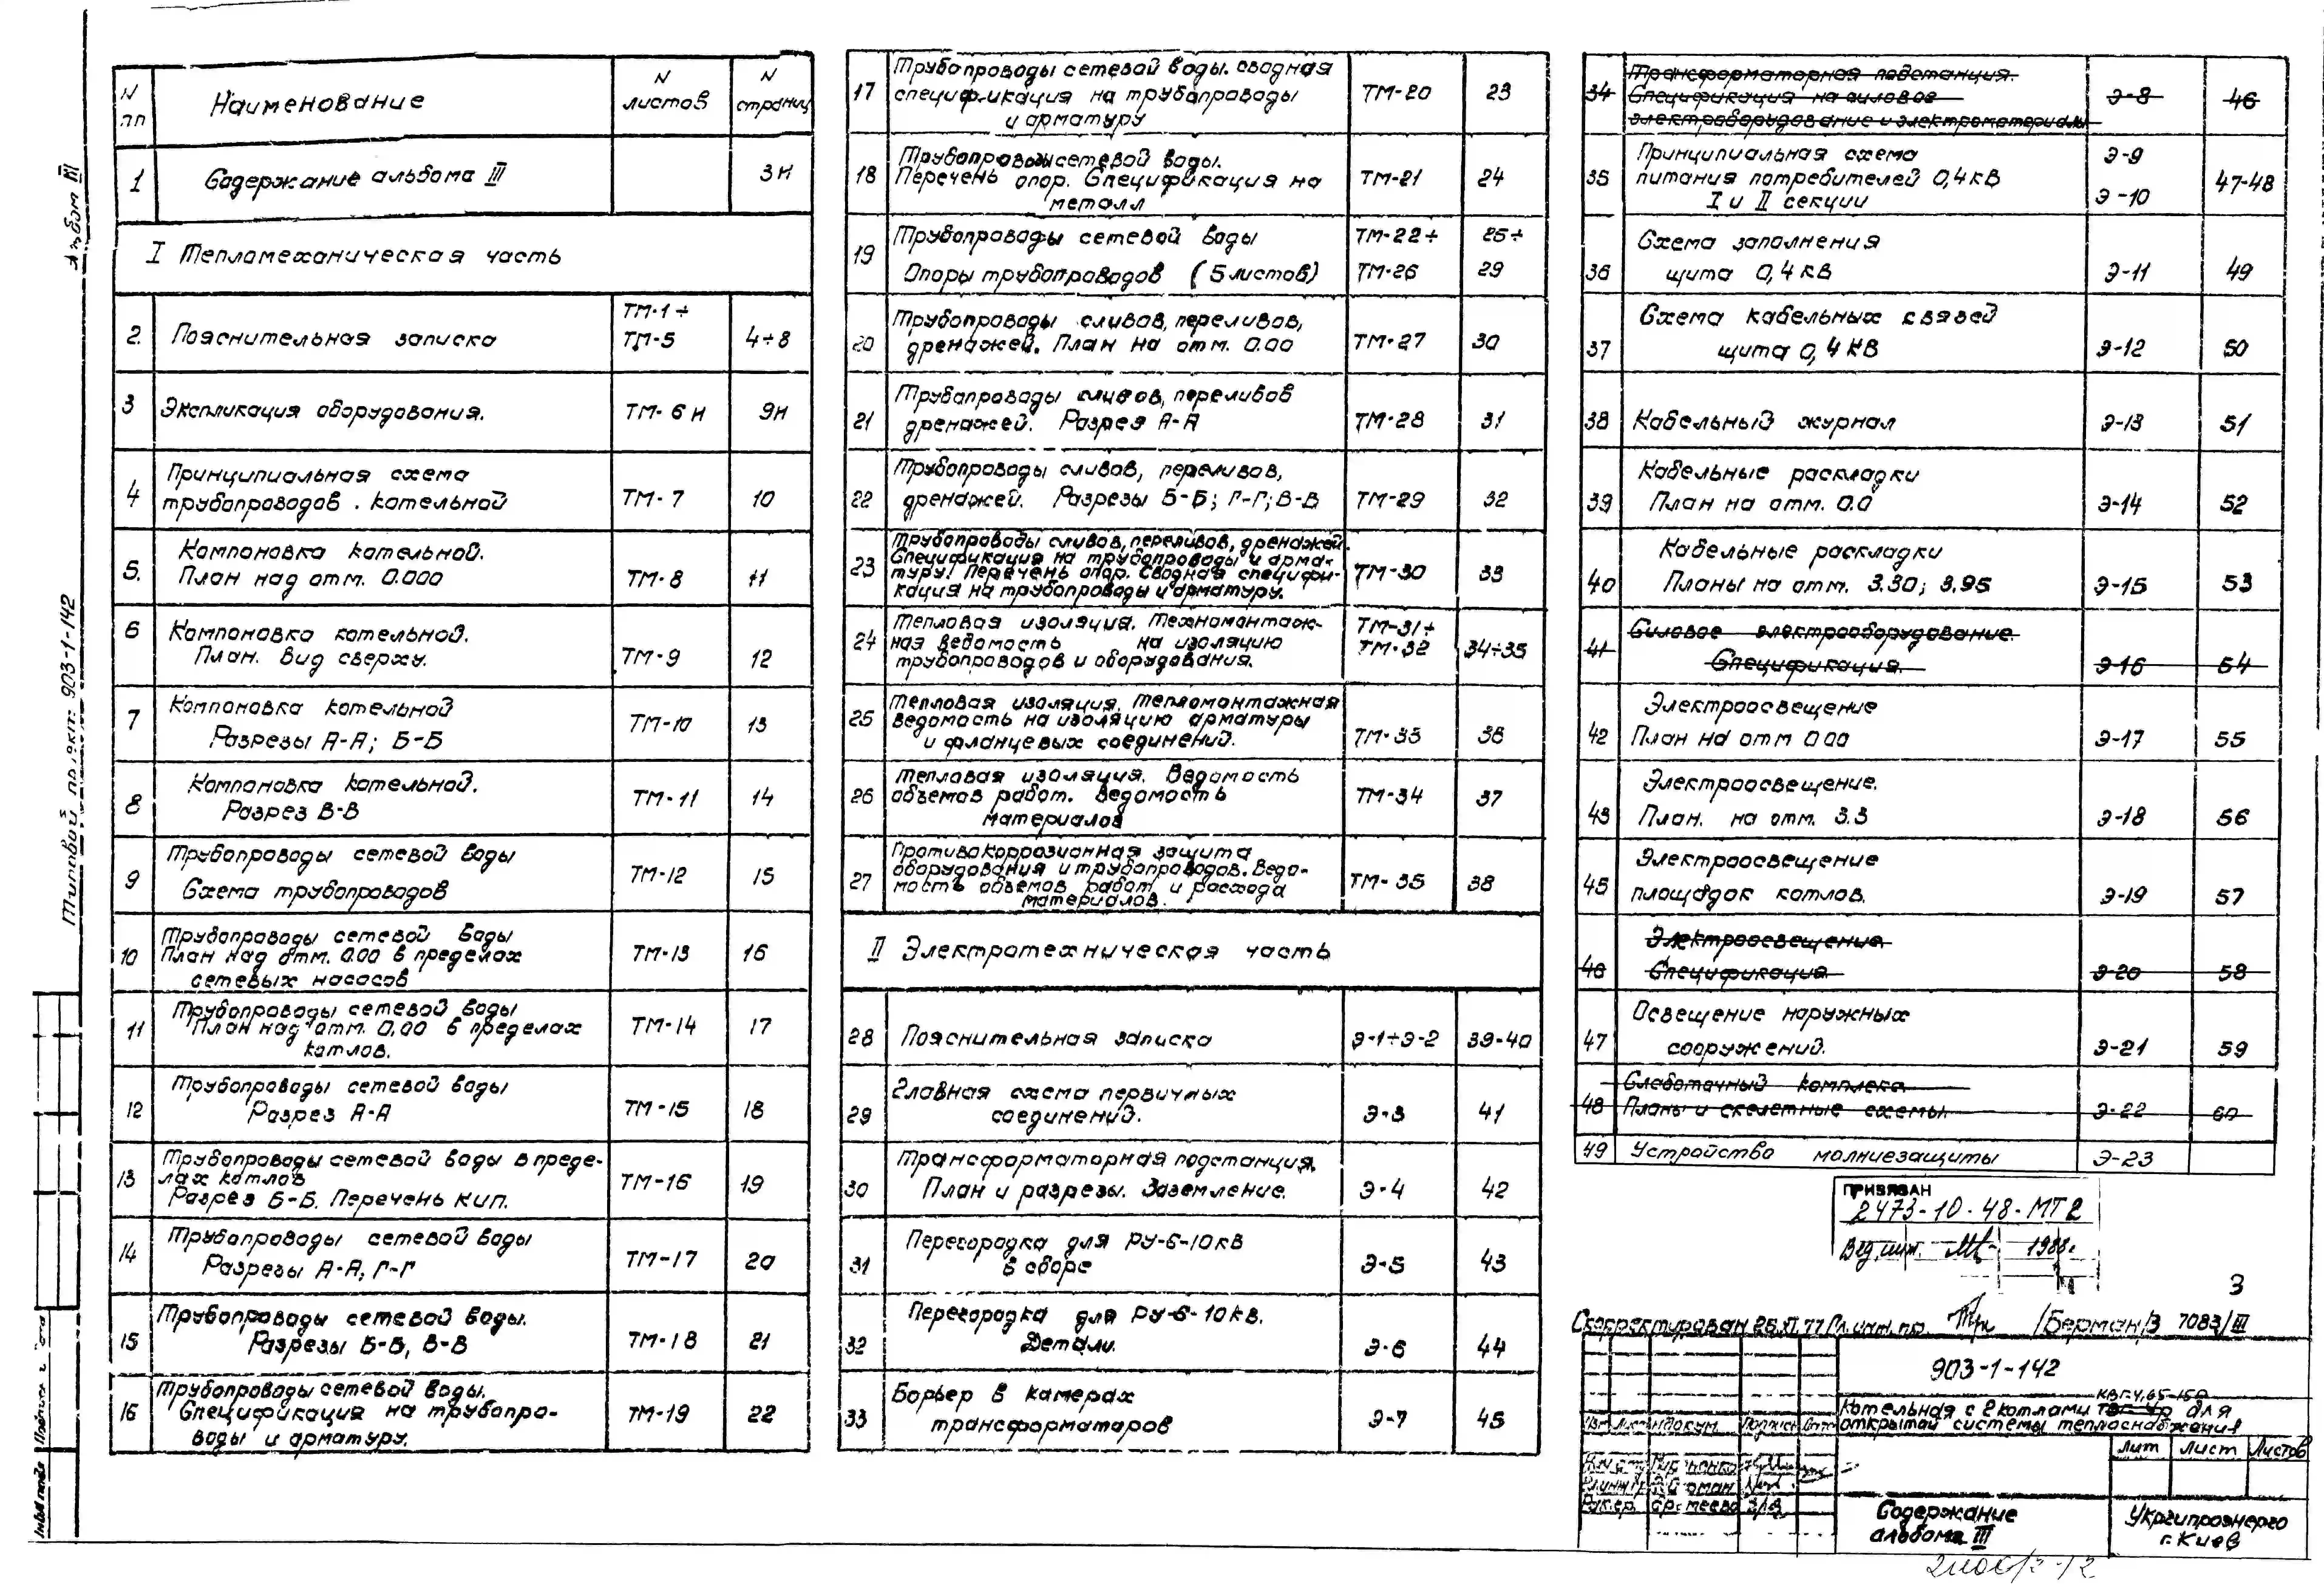 Альбом III
Типовой проект 903-1-142
N пп Наименование N листов N страниц
1 Содержание альбома III 3н
I Тепломеханическая часть
2. Пояснительная записка ТМ-1÷ ТМ-5 4÷8
3 Экспликация оборудования. ТМ-6н 9н
4 Принципиальная схема
трубопроводов . котельной ТМ-7 10
5. Компоновка котельной.
План над отм. 0.000 ТМ-8 11
6 Компоновка котельной.
План. Вид сверху. ТМ-9 12
7 Компоновка котельной
Разрезы А-А; Б-Б ТМ-10 13
8 Компоновка котельной.
Разрез В-В ТМ-11 14
9 Трубопроводы сетевой воды
Схема трубопроводов ТМ-12 15
10 Трубопроводы сетевой воды
План над отм. 0.00 в пределах
сетевых насосов ТМ-13 16
11 Трубопроводы сетевой воды
План над отм. 0.00 в пределах
котлов. ТМ-14 17
12 Трубопроводы сетевой воды
Разрез А-А ТМ-15 18
13 Трубопроводы сетевой воды в преде-
лах котлов
Разрез Б-Б. Перечень кип. ТМ-16 19
14 Трубопроводы сетевой воды
Разрезы А-А; Г-Г ТМ-17 20
15 Трубопроводы сетевой воды.
Разрезы Б-Б, В-В ТМ-18 21
16 Трубопроводы сетевой воды.
Спецификация на трубопро-
воды и арматуру. ТМ-19 22
17 Трубопроводы сетевой воды. сводная
спецификация на трубопроводы
и арматуру ТМ-20 23
18 Трубопроводы сетевой воды.
Перечень опор. Спецификация на
металл ТМ-21 24
19 Трубопроводы сетевой воды ТМ-22÷ 25÷
Опоры трубопроводов (5 листов) ТМ-26 29
20 Трубопроводы сливов, переливов,
дренажей. План на отм. 0.00 ТМ-27 30
21 Трубопроводы сливов, переливов
дренажей. Разрез А-А ТМ-28 31
22 Трубопроводы сливов, переливов,
дренажей. Разрезы Б-Б; Г-Г; В-В ТМ-29 32
23 Трубопроводы сливов, переливов, дренажей.
Спецификация на трубопроводы и арма-
туру. Перечень опор. Сводная специфи-
кация на трубопроводы и арматуру. ТМ-30 33
24 Тепловая изоляция. Техномонтаж-
ная ведомость на изоляцию
трубопроводов и оборудования. ТМ-31÷ ТМ-32 34÷35
25 Тепловая изоляция. Тепломонтажная
ведомость на изоляцию арматуры
и фланцевых соединений. ТМ-33 36
26 Тепловая изоляция. Ведомость
объемов работ. Ведомость
материалов ТМ-34 37
27 Противокоррозионная защита
оборудования и трубопроводов. Ведо-
мость объемов работ и расхода
материалов. ТМ-35 38
II Электротехническая часть
28 Пояснительная записка Э-1÷Э-2 39-40
29 Главная схема первичных
соединений. Э-3 41
30 Трансформаторная подстанция.
План и разрезы. Заземление. Э-4 42
31 Перегородка для РУ-6-10кв
в сборе Э-5 43
32 Перегородка для РУ-6-10кв.
Детали. Э-6 44
33 Барьер в камерах
трансформаторов Э-7 45
34 Трансформаторная подстанция.
Спецификация на силовое
электрооборудование и электроматериалы Э-8 46
35 Принципиальная схема Э-9
питания потребителей 0,4кв
I и II секции Э-10 47-48
36 Схема заполнения
щита 0,4кв Э-11 49
37 Схема кабельных связей
щита 0,4кв Э-12 50
38 Кабельный журнал Э-13 51
39 Кабельные раскладки
План на отм. 0.0 Э-14 52
40 Кабельные раскладки
Планы на отм. 3.30; 3.95 Э-15 53
41 Силовое электрооборудование.
Спецификация. Э-16 54
42 Электроосвещение
План на отм 0.00 Э-17 55
43 Электроосвещение.
План. на отм. 3.3 Э-18 56
45 Электроосвещение
площадок котлов. Э-19 57
46 Электроосвещение.
Спецификация Э-20 58
47 Освещение наружных
сооружений. Э-21 59
48 Слаботочный комплекс
Планы и скелетные схемы. Э-22 60
49 Устройство молниезащиты Э-23
ПРИВЯЗАН
2473-10-48-МТ2
Вед. инж. 1988г.
3
Скорректирован 25.XI.77 Гл. инж. пр. /Берман/З 7083/III
903-1-142
КВГ-4,65-150
Котельная с 2 котлами для
открытой системы теплоснабжения
Изм Лист N докум. Подпись Дата
Лит Лист Листов
Содержание
альбома III
Укргипроэнерго
г. Киев